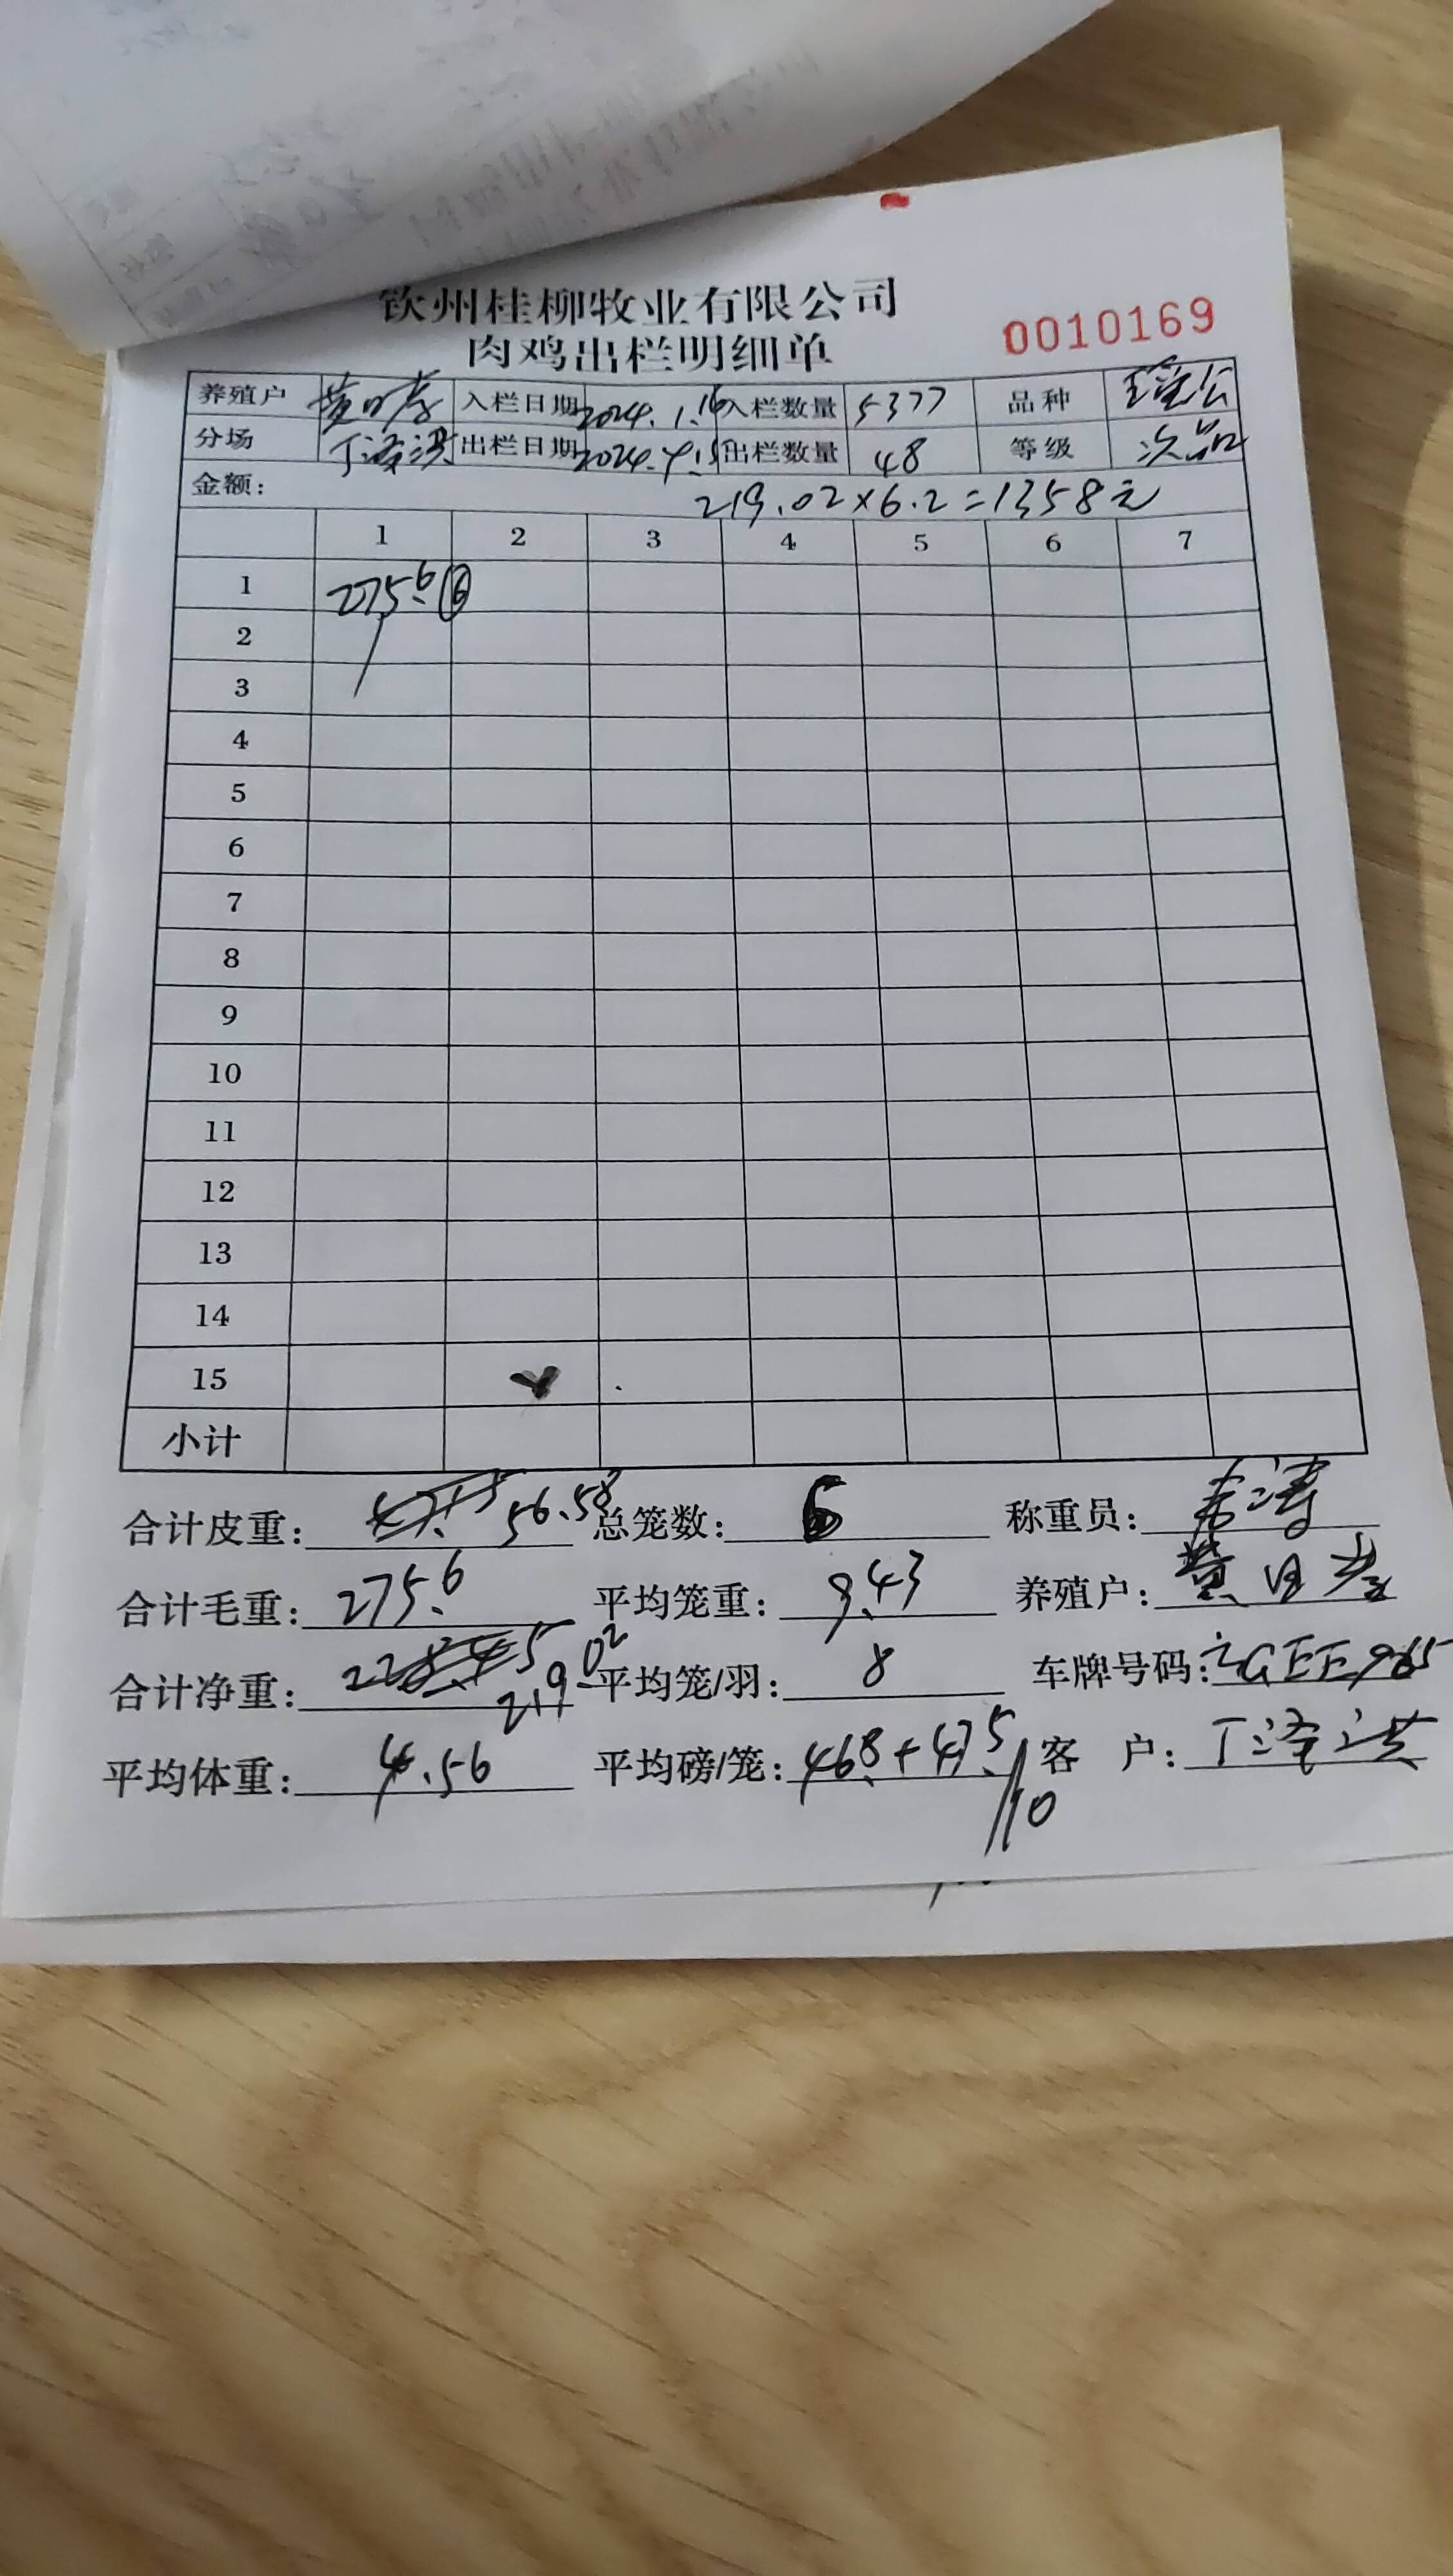 钦州桂柳牧业有限公司
0010169
肉鸡出栏明细单
养殖户 黄日孝 入栏日期 2024.1.16 入栏数量 5377 品种
分场 丁泽洪 出栏日期 2024.4.15 出栏数量 48 等级 次品
金额: 219.02×6.2=1358元
1 2 3 4 5 6 7
1 275.6 ⑥
2
3
4
5
6
7
8
9
10
11
12
13
14
15
小计
合计皮重: 56.58 总笼数: 6 称重员:
合计毛重: 275.6 平均笼重: 9.43 养殖户: 黄日孝
合计净重: 219.02 平均笼/羽: 8 车牌号码:
平均体重: 4.56 平均磅/笼: 46.8+47.5/10 客 户: 丁泽洪